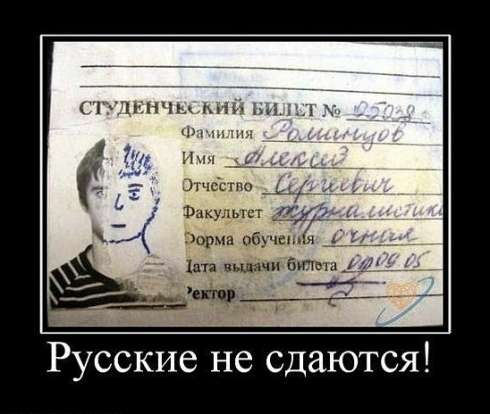 СТУДЕНЧЕСКИЙ БИЛЕТ № 25038
Фамилия Романцов
Имя Алексей
Отчество Сергеевич
Факультет журналистики
Форма обучения очная
Дата выдачи билета 09 05
Ректор
Русские не сдаются!